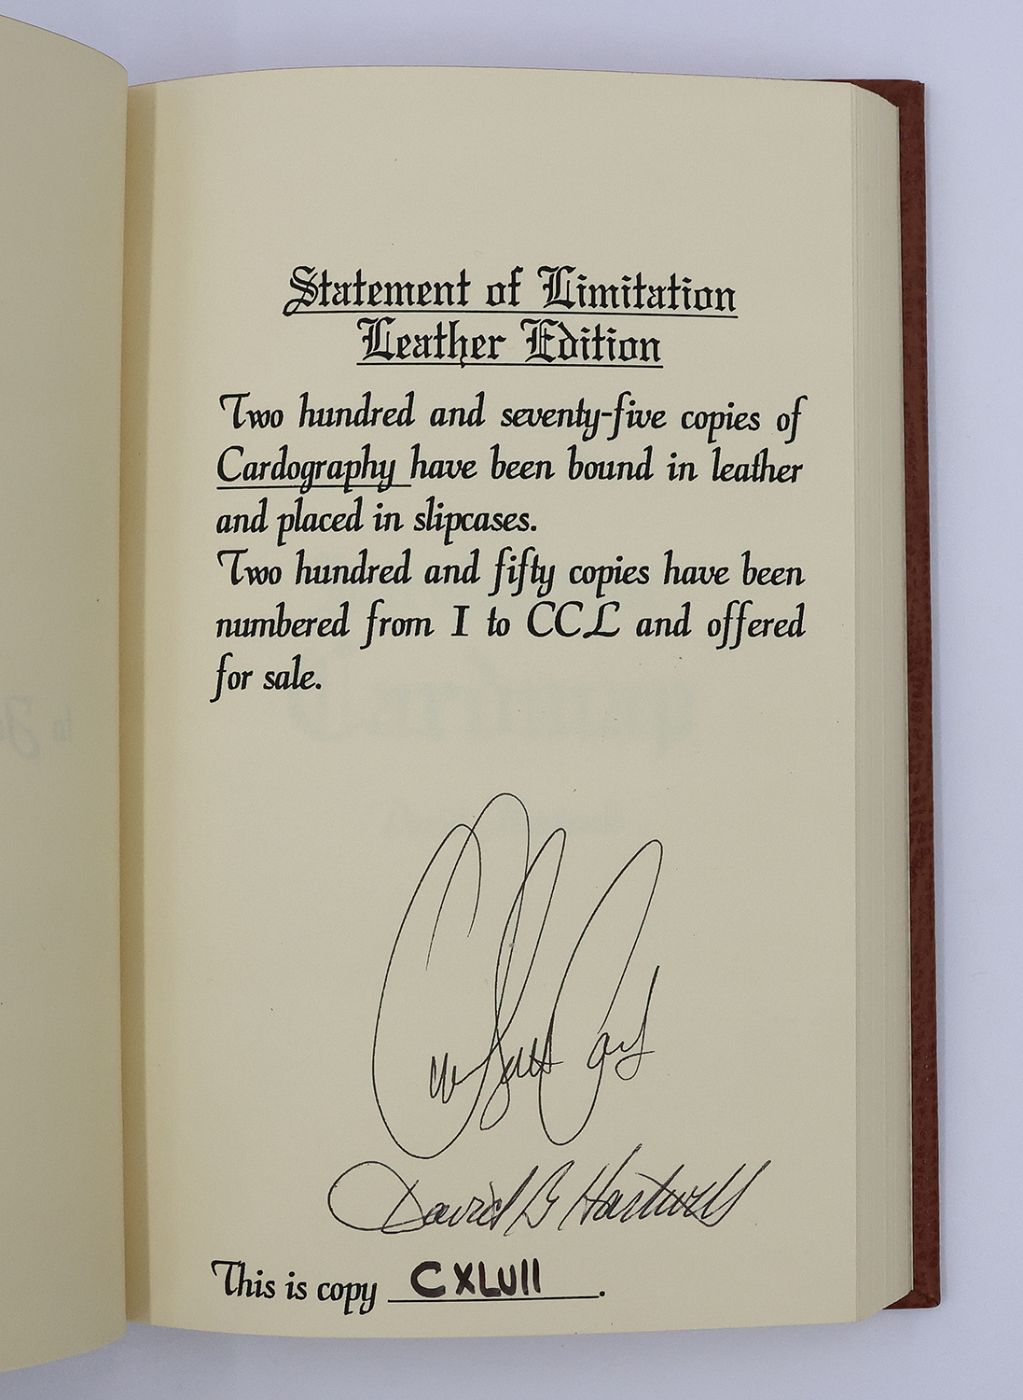 Statement of Limitation
Leather Edition
Two hundred and seventy-five copies of
Cardography have been bound in leather
and placed in slipcases.
Two hundred and fifty copies have been
numbered from I to CCL and offered
for sale.
David G Hartwell
This is copy CXLVII.